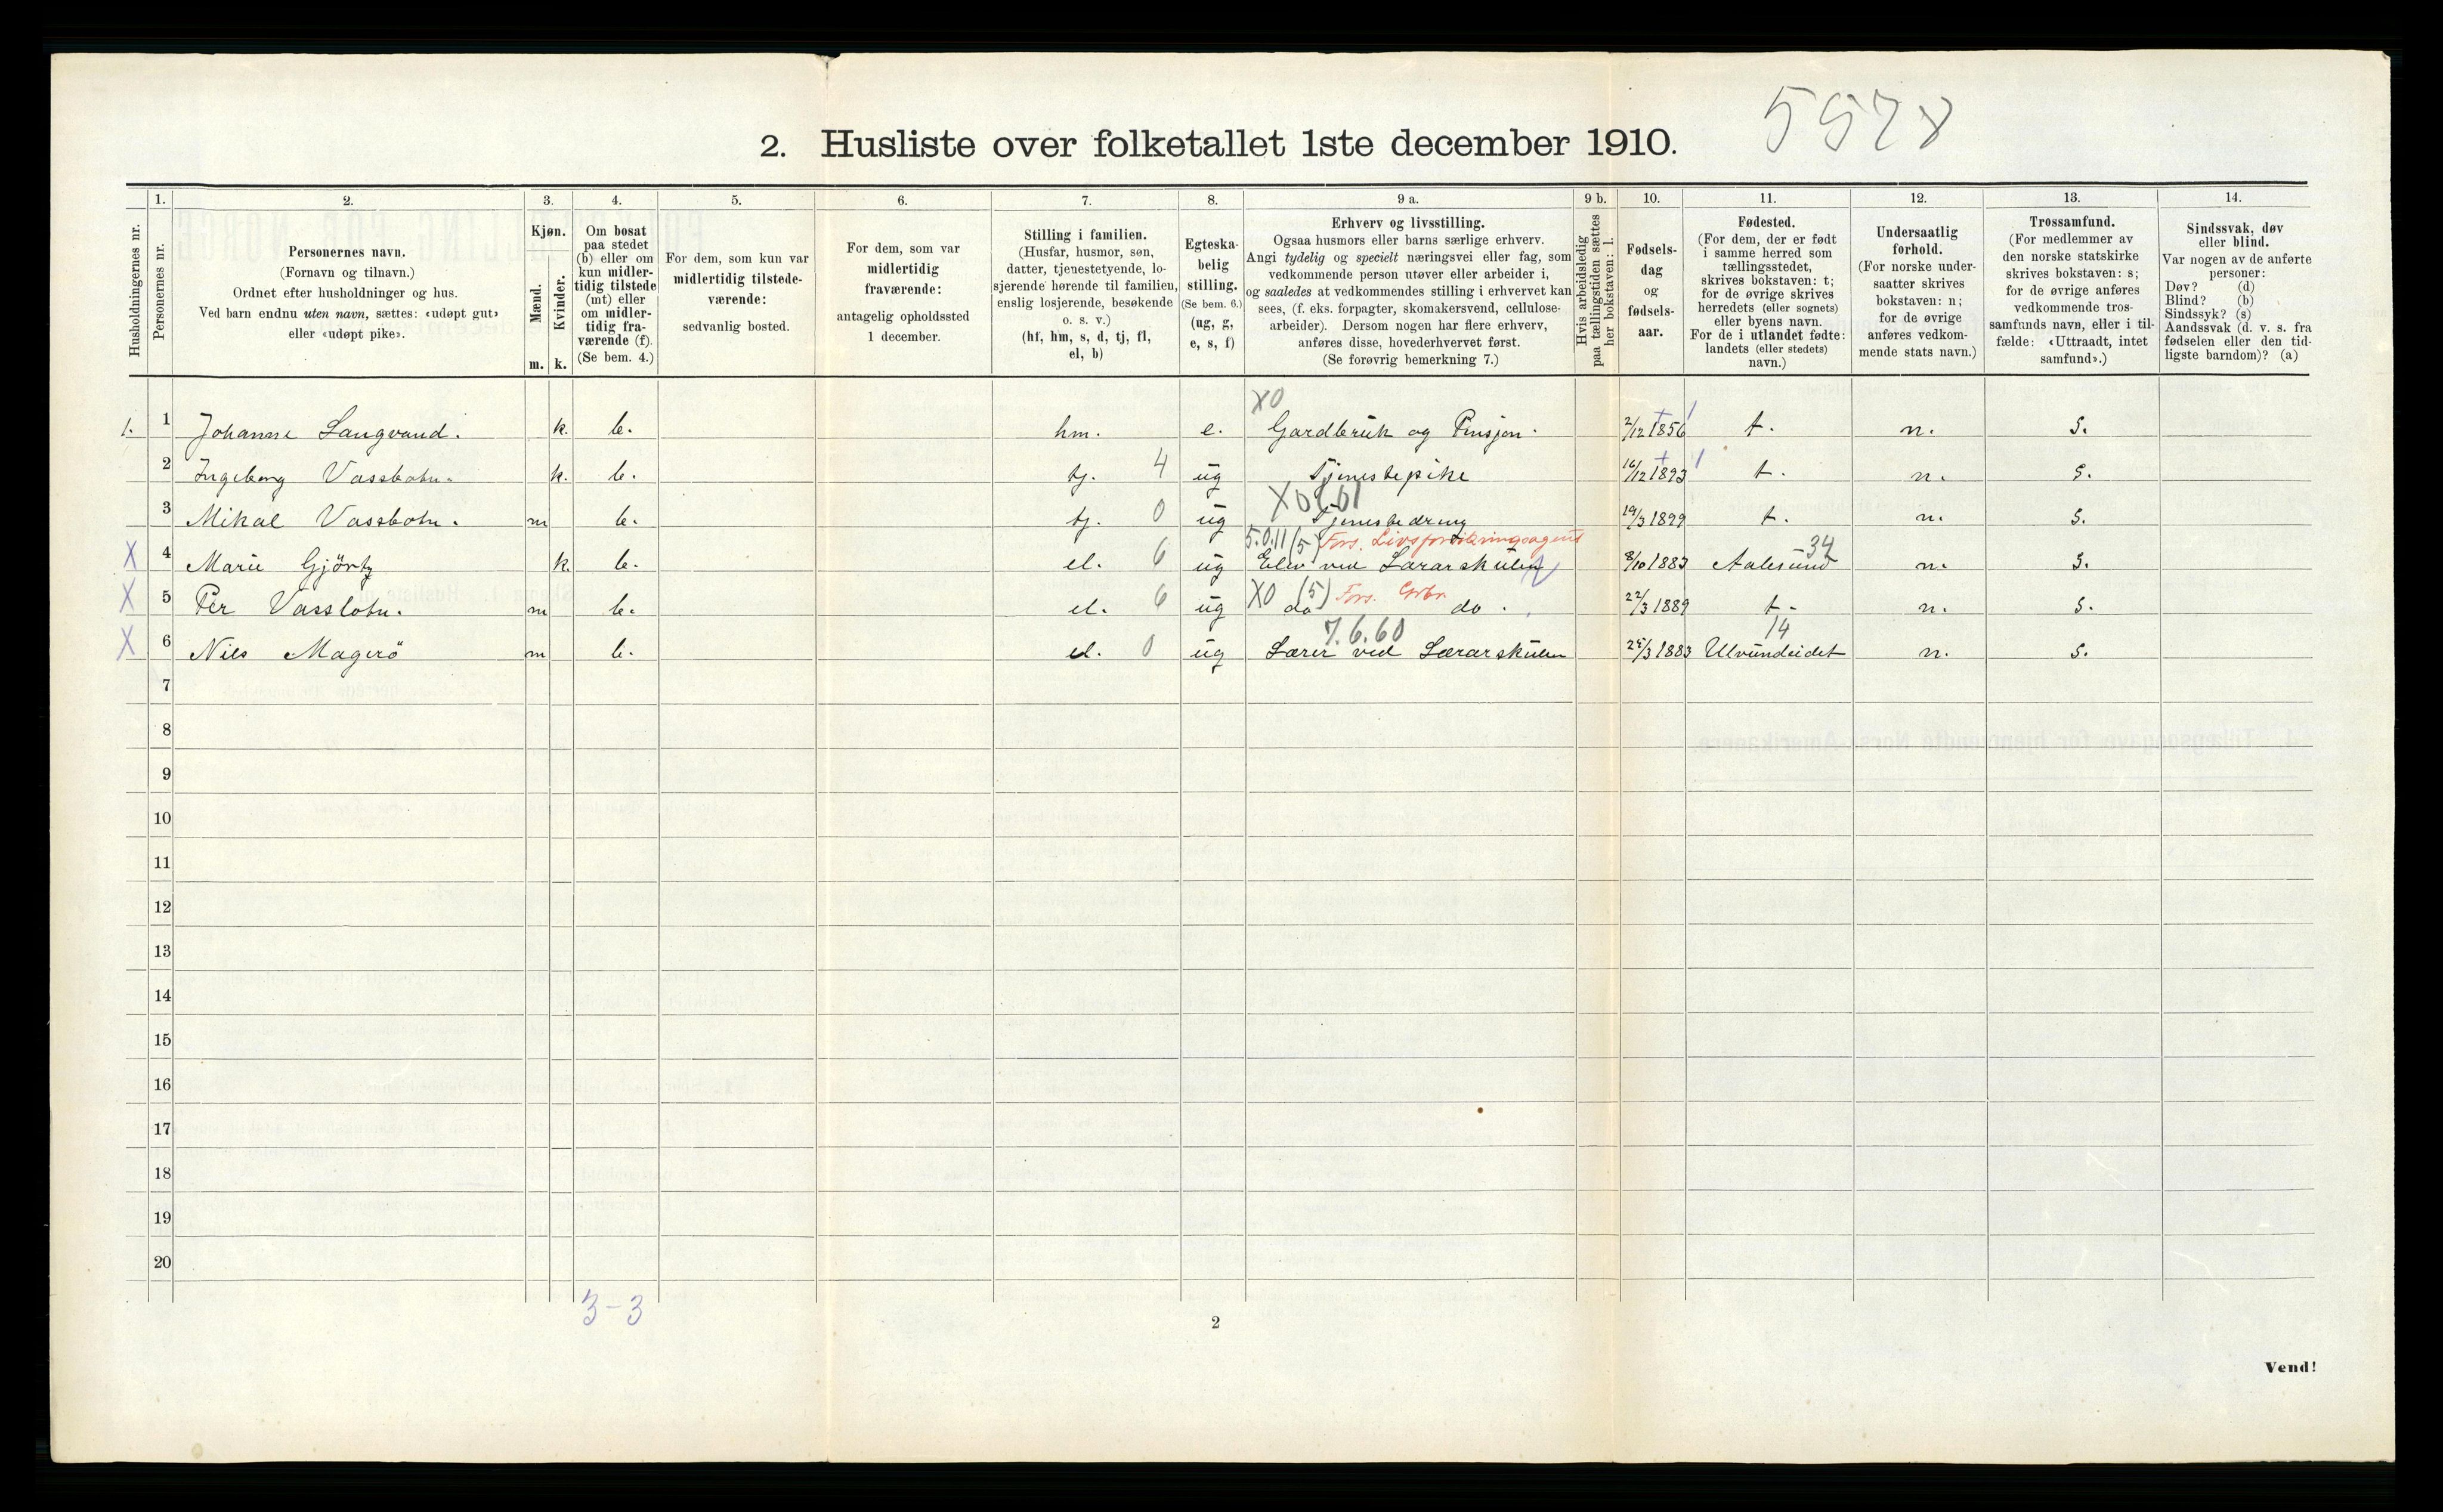 5578
2. Husliste over folketallet 1ste december 1910.
Husholdningernes nr.
1.
Personernes nr.
2.
Personernes navn.
(Fornavn og tilnavn.)
Ordnet efter husholdninger og hus.
Ved barn endnu uten navn, sættes: «udøpt gut»
eller «udøpt pike».
3.
Kjøn.
Mænd.
Kvinder.
m. k.
4.
Om bosat
paa stedet
(b) eller om
kun midler-
tidig tilstede
(mt) eller
om midler-
tidig fra-
værende (f).
(Se bem. 4.)
5.
For dem, som kun var
midlertidig tilstede-
værende:
sedvanlig bosted.
6.
For dem, som var
midlertidig
fraværende:
antagelig opholdssted
1 december.
7.
Stilling i familien.
(Husfar, husmor, søn,
datter, tjenestetyende, lo-
sjerende hørende til familien,
enslig losjerende, besøkende
o. s. v.)
(hf, hm, s, d, tj, fl,
el, b)
8.
Egteska-
belig
stilling.
(Se bem. 6.)
(ug, g,
e, s, f)
9 a.
Erhverv og livsstilling.
Ogsaa husmors eller barns særlige erhverv.
Angi tydelig og specielt næringsvei eller fag, som
vedkommende person utøver eller arbeider i,
og saaledes at vedkommendes stilling i erhvervet kan
sees, (f. eks. forpagter, skomakersvend, cellulose-
arbeider). Dersom nogen har flere erhverv,
anføres disse, hovederhvervet først.
(Se forøvrig bemerkning 7.)
9 b.
Hvis arbeidsledig
paa tællingstiden sættes
her bokstaven: l.
10.
Fødsels-
dag
og
fødsels-
aar.
11.
Fødested.
(For dem, der er født
i samme herred som
tællingsstedet,
skrives bokstaven: t;
for de øvrige skrives
herredets (eller sognets)
eller byens navn.
For de i utlandet fødte:
landets (eller stedets)
navn.)
12.
Undersaatlig
forhold.
(For norske under-
saatter skrives
bokstaven: n;
for de øvrige
anføres vedkom-
mende stats navn.)
13.
Trossamfund.
(For medlemmer av
den norske statskirke
skrives bokstaven: s;
for de øvrige anføres
vedkommende tros-
samfunds navn, eller i til-
fælde: «Uttraadt, intet
samfund».)
14.
Sindssvak, døv
eller blind.
Var nogen av de anførte
personer:
Døv? (d)
Blind? (b)
Sindssyk? (s)
Aandssvak (d. v. s. fra
fødselen eller den tid-
ligste barndom)? (a)
X0
1. 1 Johanne Langvand. k. b. hm. e. Gardbruk og Pensjon. 2/12 1856 t. n. s.
2 Ingeborg Vassbotn. k. b. tj. 4 ug Tjenestepike 16/12 1893 t. n. s.
X0
3 Mikal Vassbotn. m b. tj. 0 ug Tjenestedreng 19/3 1899 t. n. s.
5.0.11 (5) Fors. Livsforsikringsagent 34
X 4 Marie Gjörtz k. b. el. 6 ug Elev ved Lærarskulen 8/10 1883 Aalesund n. s.
X0 (5) Fors. Grbr.
X 5 Per Vassbotn. m b. el. 6 ug do do. 22/3 1889 t. n. s.
7.6.60 14
X 6 Nils Magerö m b. el. 0 ug Lærer ved Lærarskulen 25/3 1883 Ulvundeidet n. s.
7
8
9
10
11
12
13
14
15
16
17
18
19
20
3-3
2
Vend!